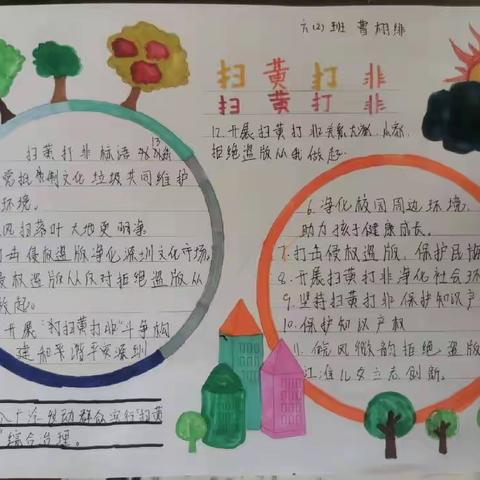 六(2)班 曹栩绯
扫黄打非
扫黄打非
12.开展扫黄打非
拒绝盗版从我做起.
扫黄打非标语
文化垃圾共同维护
环境。
风扫落叶大地更明净
打击侵权盗版净化深圳文化市场。
侵权盗版从反对拒绝盗版从
做起。
开展“打扫黄打非”斗争构
建和平谐平安深圳
发动群众实行“扫黄
综合治理。
6.净化校园周边环境,
助力孩子健康成长。
7.打击侵权盗版,保护民
8.开展扫黄打非净化社会环
9.坚持扫黄打非,保护知识产
10.保护知识产权
11.皖风徽韵拒绝盗版
江淮儿女立志创新。